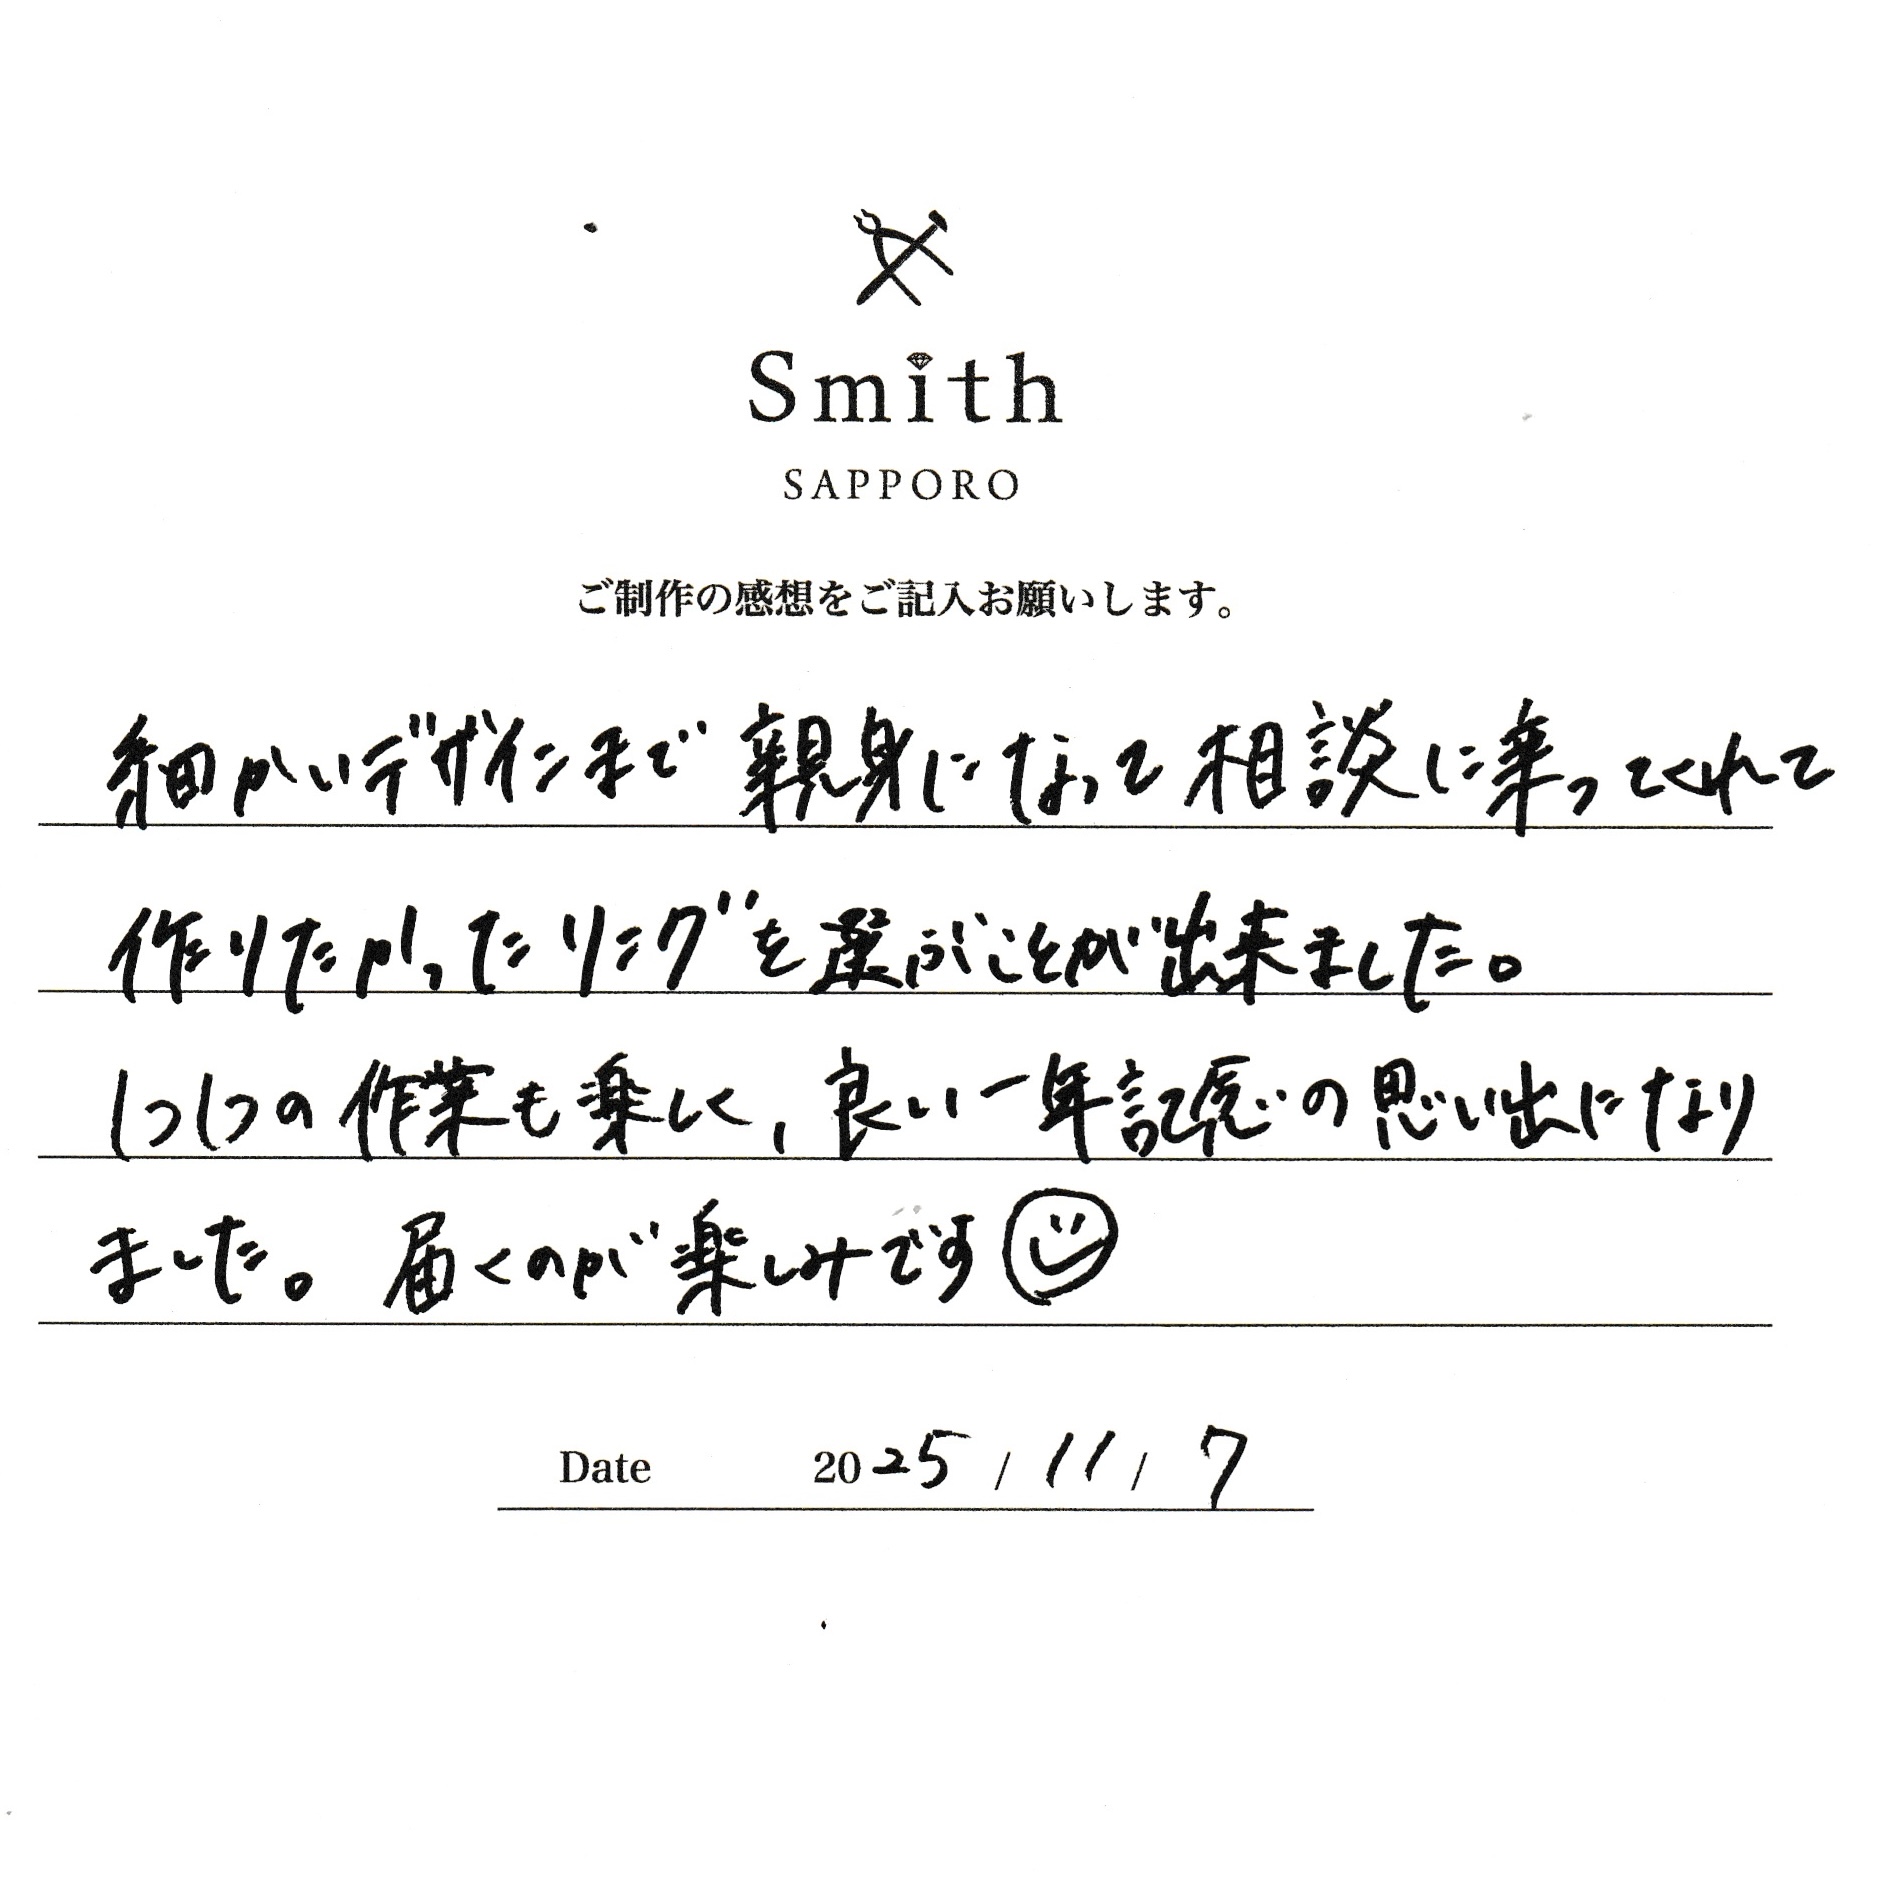 Smith
SAPPORO
ご制作の感想をご記入お願いします。
細かいデザインまで親身になって相談に乗ってくれて
作りたかったリングを選ぶことが出来ました。
1つ1つの作業も楽しく,良い一年記念の思い出になり
ました。届くのが楽しみです
Date 2025/11/7